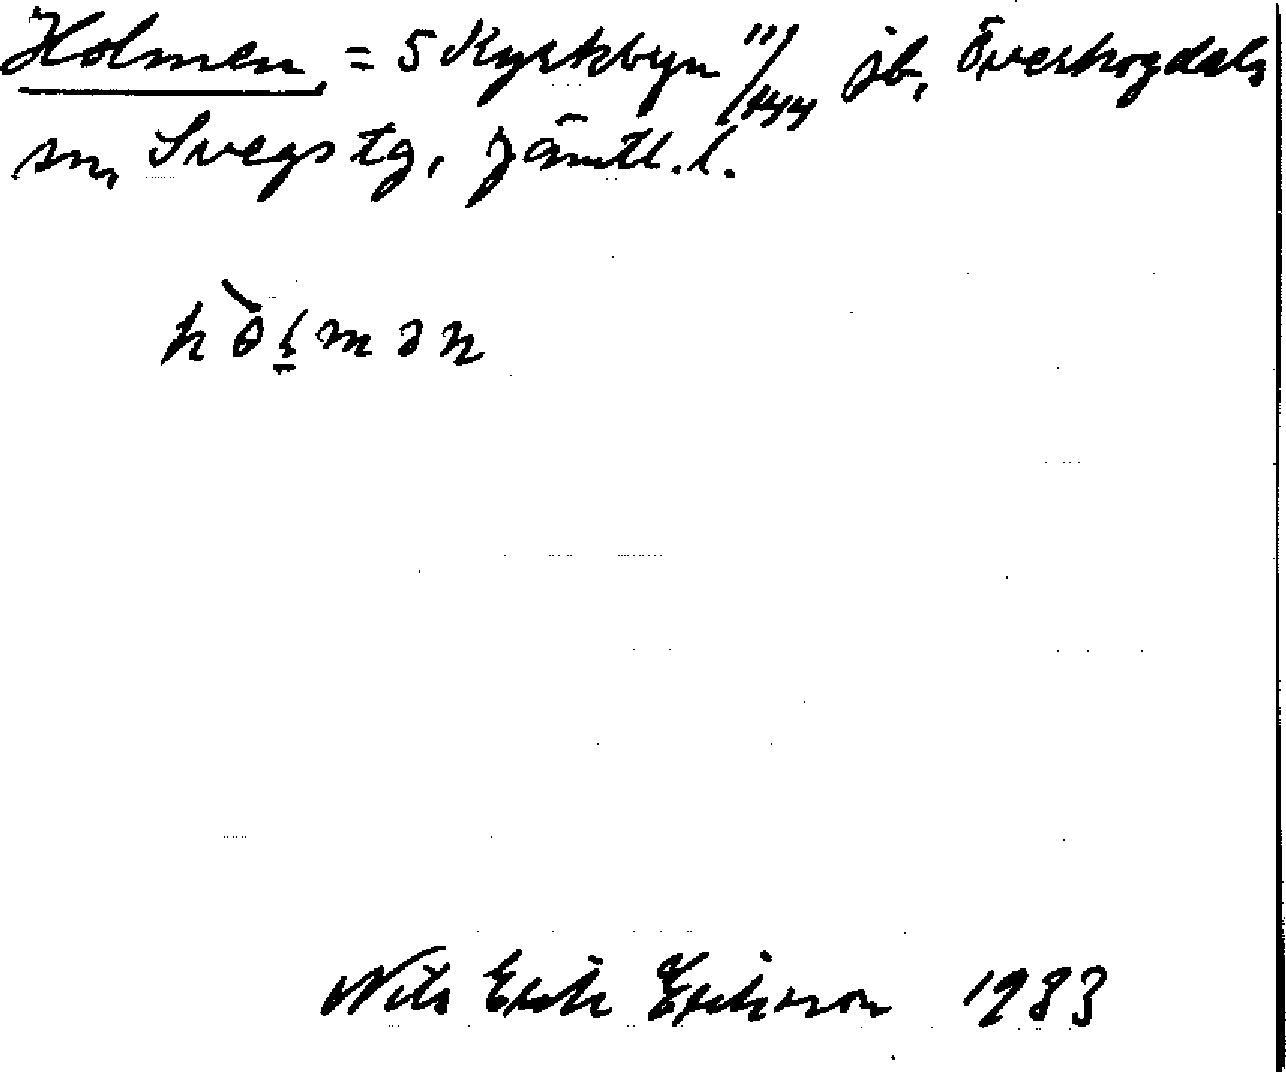 Holmen = 5 Kyrkbyn 11/144 jb, Överhogdals
sn, Svegs tg, Jämtl. l.
hòḷmən
Nils Erik Erikson 1983